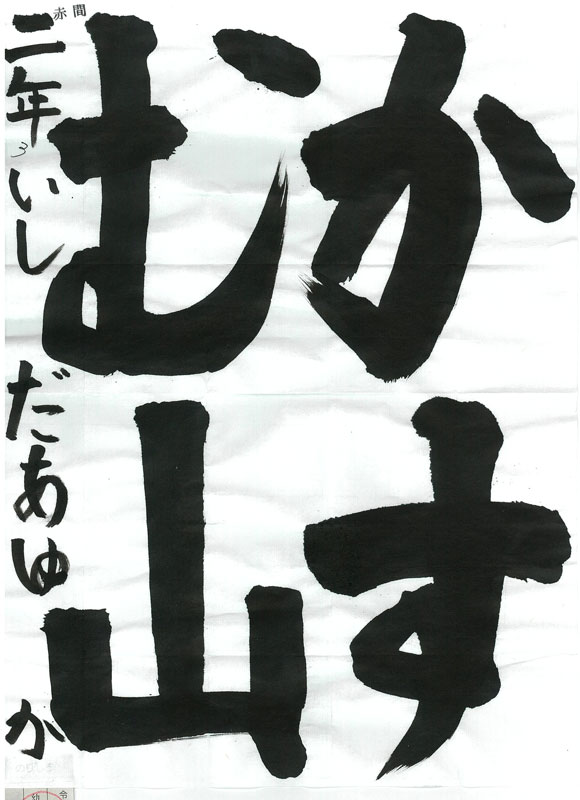 かす
む山
二年いしだあゆか
赤間
3